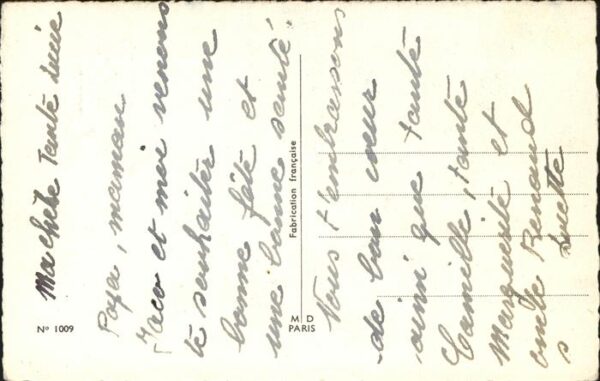 Ma chère Tante Lucie
Papa, maman
Jaco et moi venons
te souhaiter une
bonne fête et
une bonne santé
Nous t'embrassons
de bon cœur
ainsi que tante
Camille, tante
Marguerite et
oncle Renaud
Lucette
s
Fabrication française
M D
PARIS
N° 1009